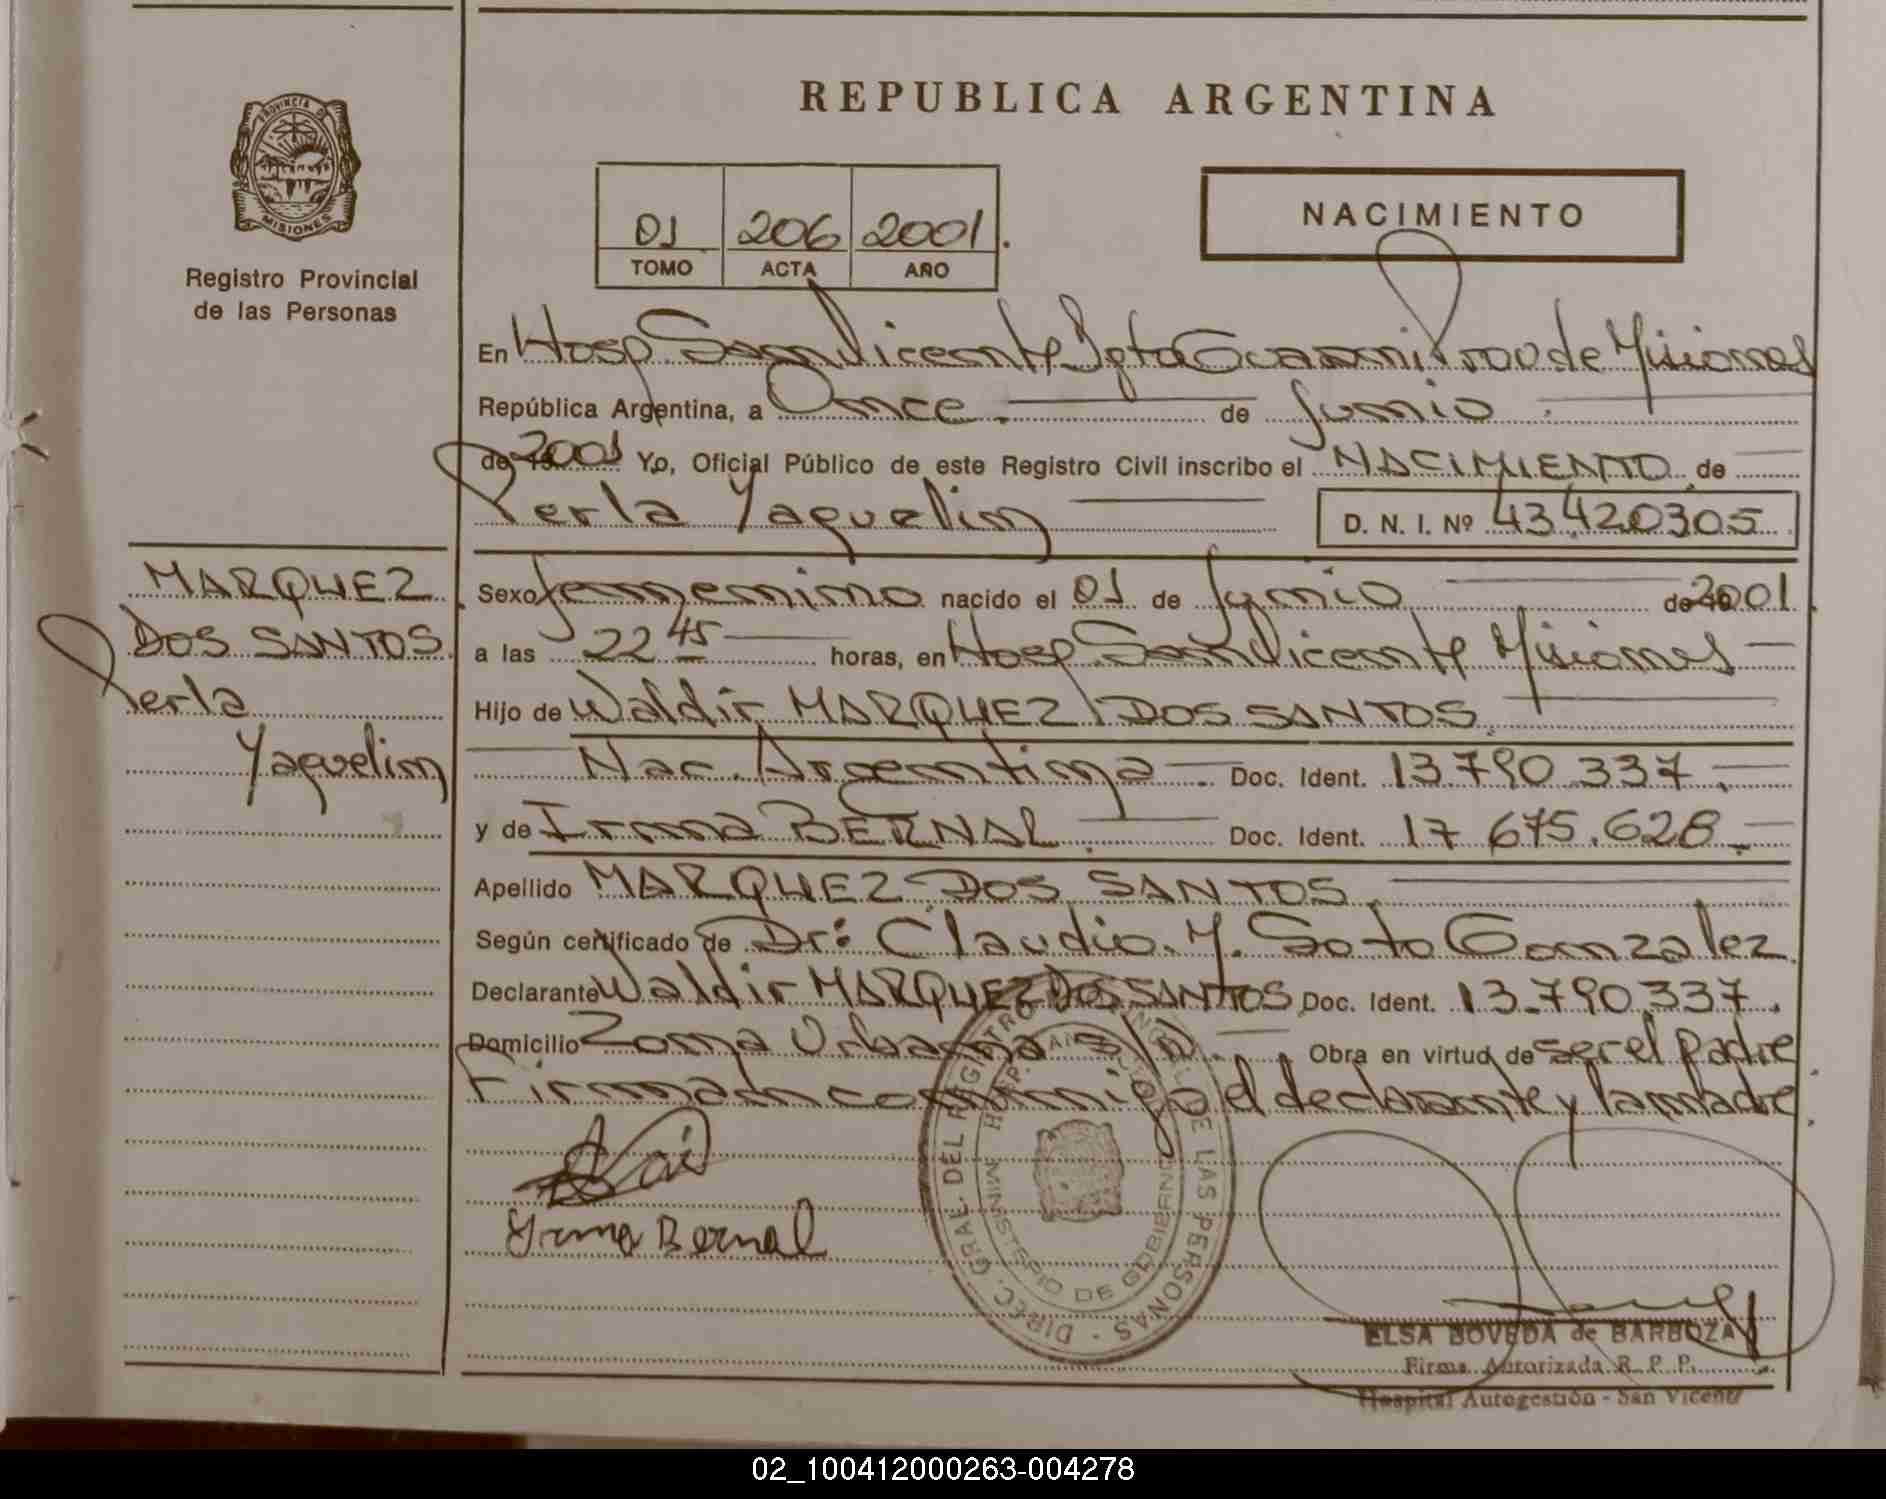 REPUBLICA ARGENTINA
PROVINCIA DE MISIONES
Registro Provincial
de las Personas
01 206 2001.
TOMO ACTA AÑO
NACIMIENTO
En Hosp San Vicente Dpto Guarani Prov de Misiones
República Argentina, a Once. de Junio.
de 19 2001 Yo, Oficial Público de este Registro Civil inscribo el NACIMIENTO de
Perla Yaquelin D. N. I. Nº 43.420305
MARQUEZ
DOS SANTOS
Perla
Yaquelin
Sexo femenino nacido el 01 de Junio de 19 2001.
a las 22 45 horas, en Hosp San Vicente Misiones
Hijo de Waldir MARQUEZ DOS SANTOS.
Nac. Argentina Doc. Ident. 13.790.337.
y de Irma BERNAL. Doc. Ident. 17 675.628.
Apellido MARQUEZ DOS SANTOS.
Según certificado de Dr: Claudio. M. Soto Gonzalez.
Declarante Waldir MARQUEZ DOS SANTOS Doc. Ident. 13.790.337.
Domicilio Zona Urbana s/n. Obra en virtud de ser el padre
Firman conmigo el declarante y la madre.
Yrma Bernal
DIREC. GRAL. DEL REGISTRO PROVINCIAL DE LAS PERSONAS
MINISTERIO DE GOBIERNO
ELSA BOVEDA de BARBOZA
Firma Autorizada R. P. P.
Hospital Autogestión - San Vicente
02_100412000263-004278